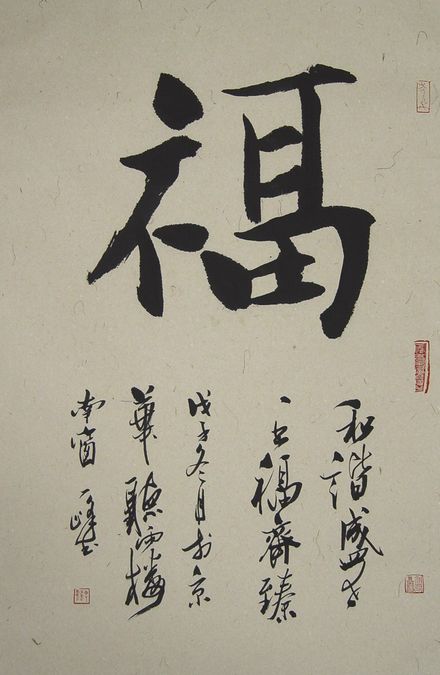 福
和谐盛世
五福齊臻
戊子冬月於京
華聽雨樓
南